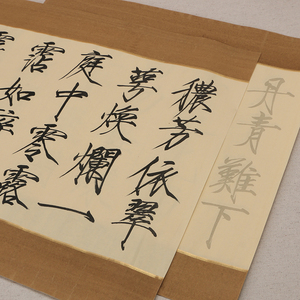 丹青難下
穠芳依翠
萼煥爛一
庭中零露
霑如醉